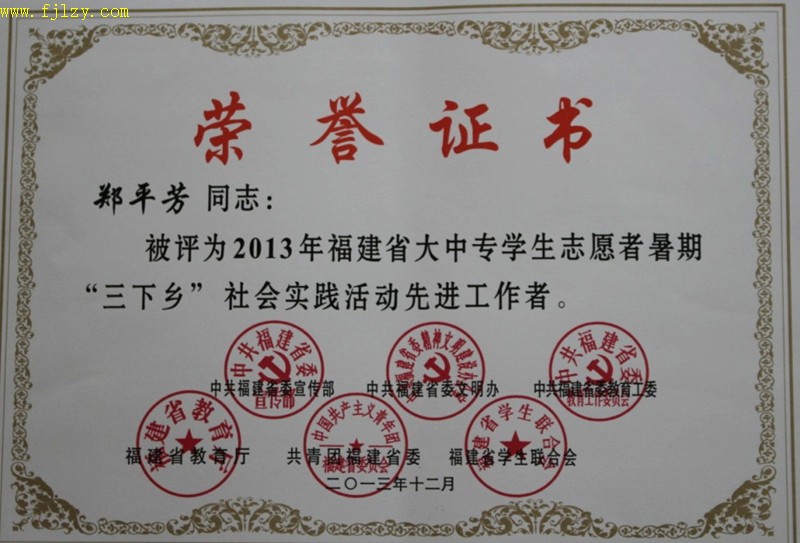 www.fjlzy.com
荣誉证书
郑平芳 同志：
被评为2013年福建省大中专学生志愿者暑期
“三下乡”社会实践活动先进工作者。
中共福建省委
宣传部
中共福建省委
教育工作委员会
中共福建省委宣传部 中共福建省委文明办 中共福建省委教育工委
福建省教育厅
中国共产主义青年团
福建省委员会
福建省学生联合会
福建省教育厅 共青团福建省委 福建省学生联合会
二〇一三年十二月